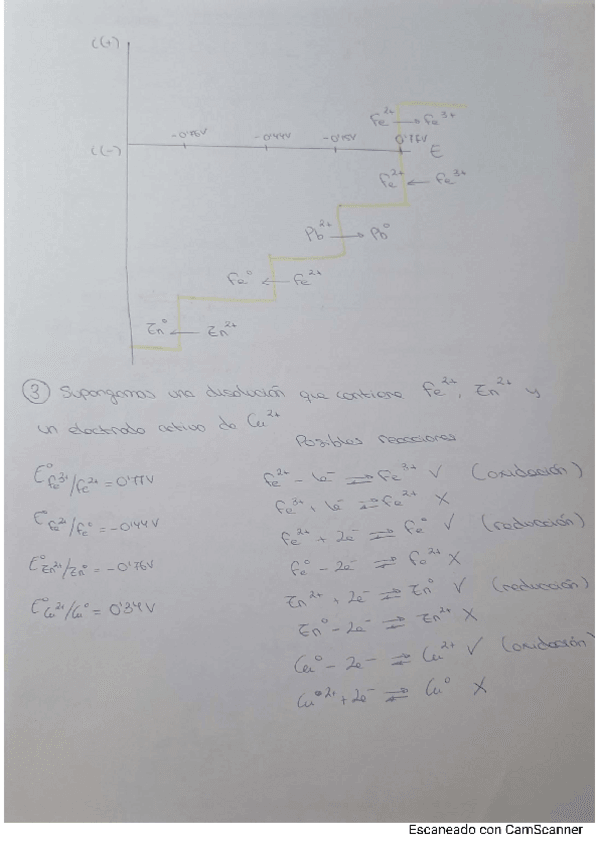 i(+)
-0'76V -0'44V -0'15V 0'77V
i(-) E
Fe²⁺ → Fe³⁺
Fe²⁺ ← Fe³⁺
Pb²⁺ → Pb⁰
Fe⁰ ← Fe²⁺
Zn⁰ ← Zn²⁺
③ Supongamos una disolución que contiene Fe²⁺, Zn²⁺ y
un electrodo activo de Cu²⁺
Posibles reacciones
E⁰ Fe³⁺/Fe²⁺ = 0'77V
E⁰ Fe²⁺/Fe⁰ = -0'44V
E⁰ Zn²⁺/Zn⁰ = -0'76V
E⁰ Cu²⁺/Cu⁰ = 0'34V
Fe²⁺ - 1e⁻ ⇌ Fe³⁺ ✓ (oxidación)
Fe³⁺ + 1e⁻ ⇌ Fe²⁺ X
Fe²⁺ + 2e⁻ ⇌ Fe⁰ ✓ (reducción)
Fe⁰ - 2e⁻ ⇌ Fe²⁺ X
Zn²⁺ + 2e⁻ ⇌ Zn⁰ ✓ (reducción)
Zn⁰ - 2e⁻ ⇌ Zn²⁺ X
Cu⁰ - 2e⁻ ⇌ Cu²⁺ ✓ (oxidación)
Cu²⁺ + 2e⁻ ⇌ Cu⁰ X
Escaneado con CamScanner